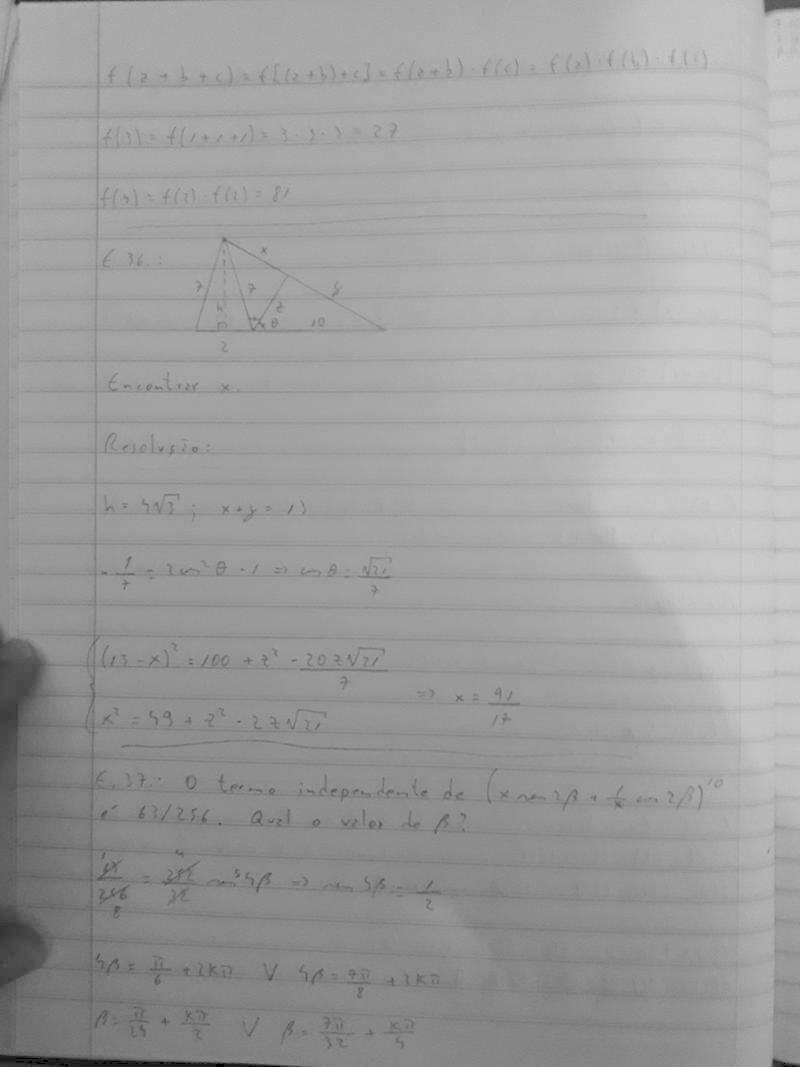 f(a + b + c) = f[(a+b)+c] = f(a+b) · f(c) = f(a) · f(b) · f(c)
f(3) = f(1+1+1) = 3 · 3 · 3 = 27
f(4) = f(2) · f(2) = 81
E. 36.:
x
7
7
y
h
z
θ
10
2
Encontrar x.
Resolução:
h = 4√3 ; x + y = 13
- 1/7 = 2cos² θ - 1 => cos θ = √21/7
(13 - x)² = 100 + z² - 20z√21/7
x² = 49 + z² - 2z√21
=> x = 91/17
E. 37.: O termo independente de (x sen 2β + 1/x cos 2β)^10
é 63/256. Qual o valor de β?
63/256 = 252/32 sen⁵4β => sen 4β = 1/2
1 8 4
4β = π/6 + 2kπ V 4β = 7π/8 + 2kπ
β = π/24 + kπ/2 V β = 7π/32 + kπ/4